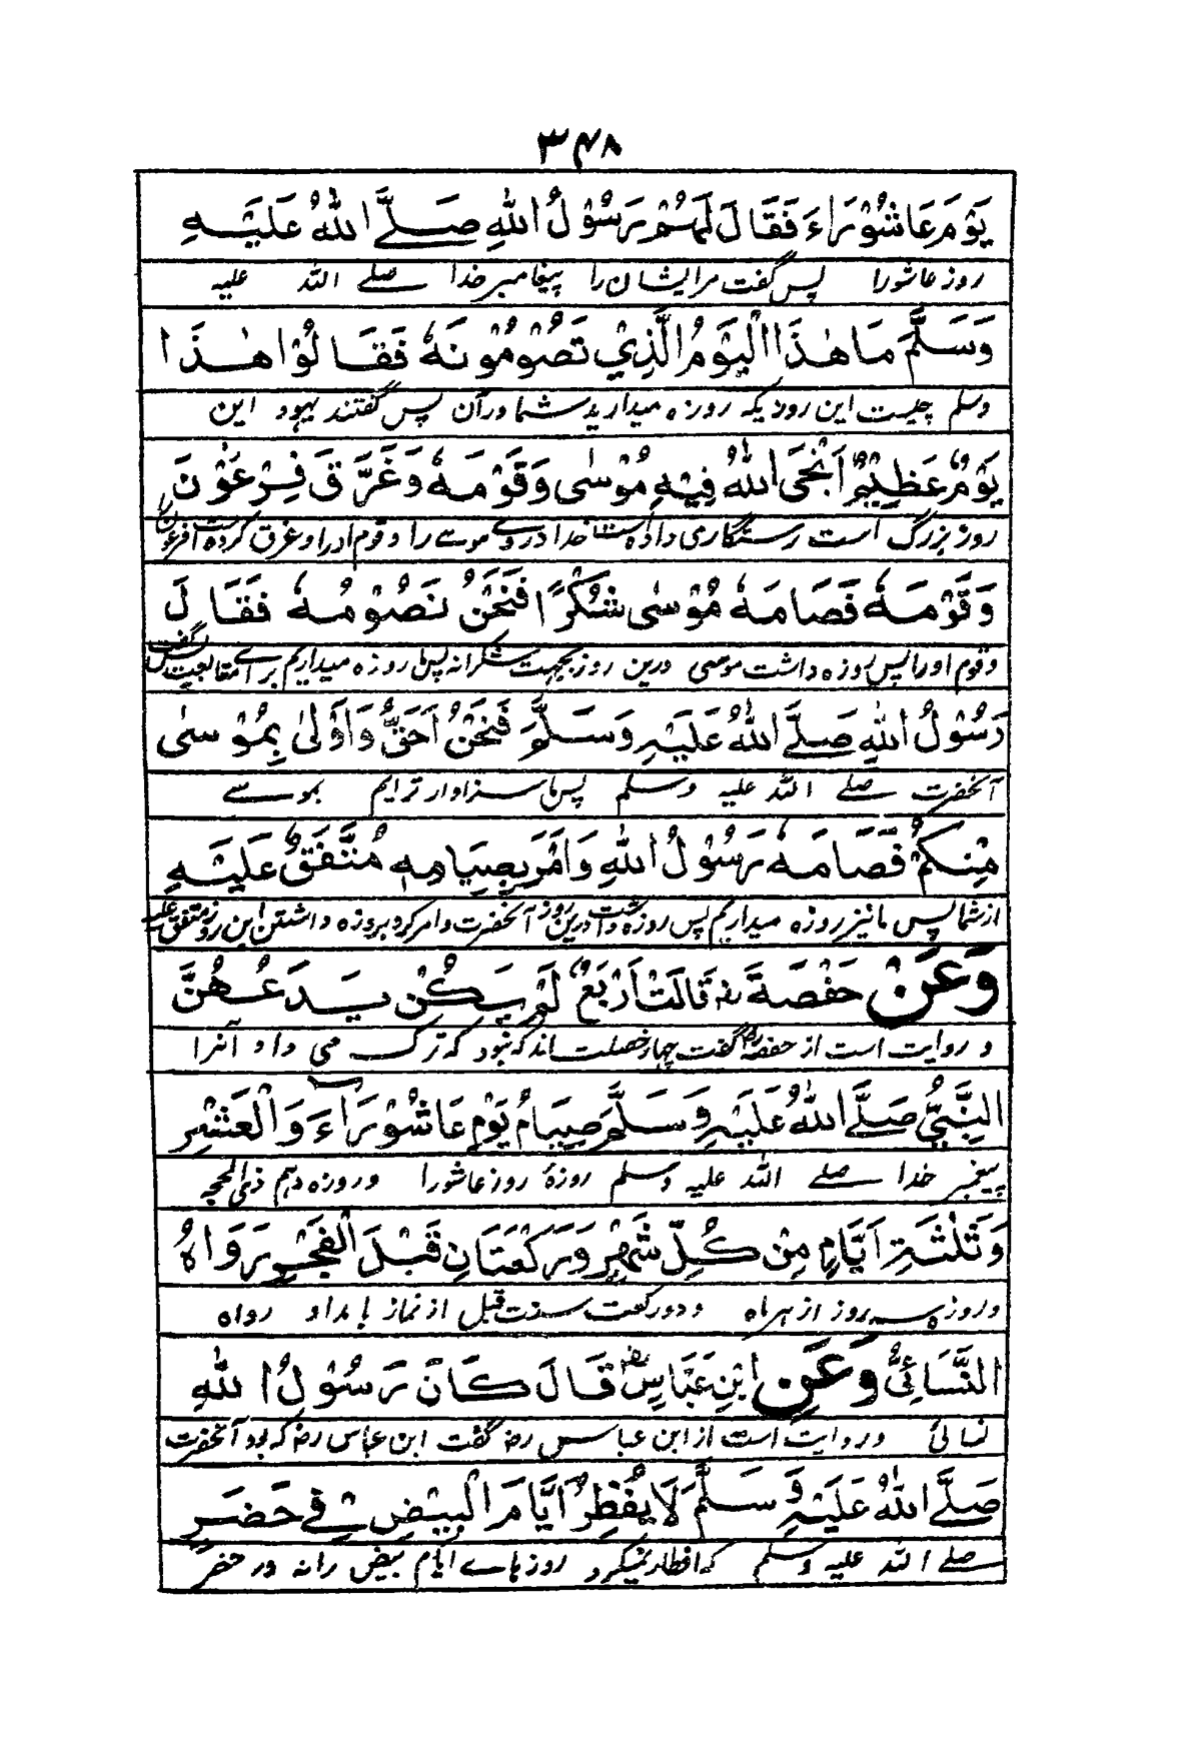 ۳۴۸
يَوْمَ عَاشُوْرَاءَ فَقَالَ لَهُمْ رَسُوْلُ اللهِ صَلَّے اللهُ عَلَيْهِ
روز عاشورا پس گفت مرایشان را پیغامبر خدا صلے اللہ علیہ
وَسَلَّمَ مَا هٰذَا الْيَوْمُ الَّذِيْ تَصُوْمُوْنَهٗ فَقَالُوْا هٰذَا
وسلم چیست این روزیکہ روزہ میدارید شما در آن پس گفتند یہود این
يَوْمٌ عَظِيْمٌ اَنْجَی اللهُ فِيْهِ مُوْسٰی وَقَوْمَهٗ وَغَرَّقَ فِرْعَوْنَ
روز بزرگ است رستگاری دادہ است خدا دروے موسے را و قوم او را و غرق کردہ است فرعون
وَقَوْمَهٗ فَصَامَهٗ مُوْسٰی شُكْرًا فَنَحْنُ نَصُوْمُهٗ فَقَالَ
وقوم اورا پس روزہ داشت موسی درین روز بجہت شکرانہ پس ما روزہ میداریم برائے متابعت پس گفت
رَسُوْلُ اللهِ صَلَّے اللهُ عَلَيْهِ وَسَلَّمَ فَنَحْنُ اَحَقُّ وَاَوْلٰی بِمُوْسٰی
آنحضرت صلے اللہ علیہ وسلم پس ما سزاوار ترایم بموسے
مِنْكُمْ فَصَامَهٗ رَسُوْلُ اللهِ وَاَمَرَ بِصِيَامِهٖ مُتَّفَقٌ عَلَيْهِ
از شما پس ما نیز روزہ میداریم پس روزہ داشت درین روز آنحضرت و امر کرد بروزہ داشتن این روز متفق علیہ
وَعَنْ حَفْصَةَ رض قَالَتْ اَرْبَعٌ لَمْ يَكُنْ يَدَعُهُنَّ
و روایت است از حفصہ رض گفت چہار خصلت اند کہ نبود کہ ترک می داد آنرا
النَّبِيُّ صَلَّے اللهُ عَلَيْهِ وَسَلَّمَ صِيَامُ يَوْمِ عَاشُوْرَاءَ وَالْعَشْرِ
پیغمبر خدا صلے اللہ علیہ وسلم روزۂ روز عاشورا و روزہ دہم ذی الحجہ
وَثَلٰثَةِ اَيَّامٍ مِنْ كُلِّ شَهْرٍ وَرَكْعَتَانِ قَبْلَ الْفَجْرِ رَوَاهُ
و روزہ سہ روز از ہر ماہ و دو رکعت سنت قبل از نماز بامداد رواہ
النَّسَائِيُّ وَعَنِ ابْنِ عَبَّاسٍ رض قَالَ كَانَ رَسُوْلُ اللهِ
نسائی و روایت است از ابن عباس رض گفت ابن عباس رض کہ بود آنحضرت
صَلَّے اللهُ عَلَيْهِ وَسَلَّمَ لَا يُفْطِرُ اَيَّامَ الْبِيْضِ فِيْ حَضَرٍ
صلے اللہ علیہ وسلم کہ افطار نمیکرد روز ہاے ایام بیض را نہ در حضر